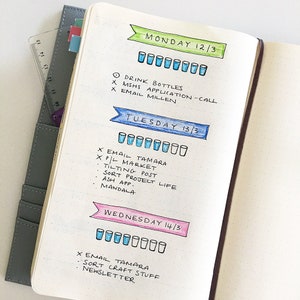 MONDAY 12/3
DRINK BOTTLES
x MSHS APPLICATION - CALL
x EMAIL MILLEN
TUESDAY 13/3
x EMAIL TAMARA
x P/L MARKET
· TILTING POST
· SORT PROJECT LIFE
· ASH APP.
· MANDALA
WEDNESDAY 14/3
x EMAIL TAMARA
· SORT CRAFT STUFF
· NEWSLETTER